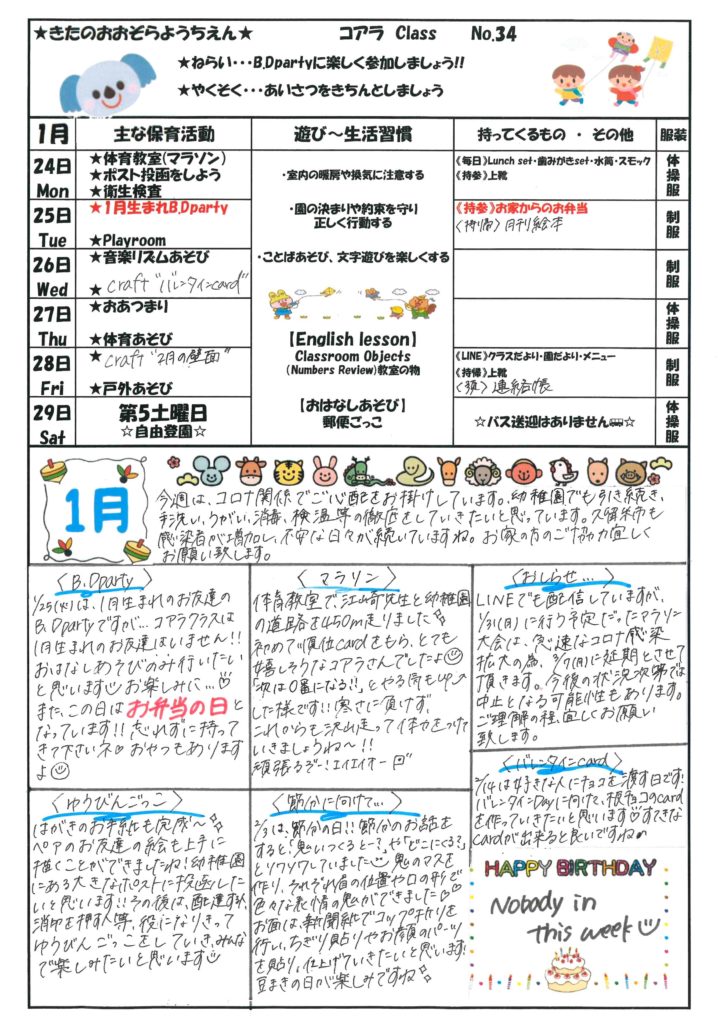 ★きたのおおぞらようちえん★ コアラ Class No.34
★ねらい・・・B.Dpartyに楽しく参加しましょう!!
★やくそく・・・あいさつをきちんとしましょう
1月 主な保育活動 遊び～生活習慣 持ってくるもの ・ その他 服装
24日 Mon
★体育教室(マラソン)
★ポスト投函をしよう
★衛生検査
《毎日》Lunch set・歯みがきset・水筒・スモック
《持参》上靴
体操服
25日 Tue
★1月生まれB.Dparty
★Playroom
《持参》お家からのお弁当
《持帰》月刊絵本
制服
26日 Wed
★音楽リズムあそび
★craft "バレンタインcard"
制服
27日 Thu
★おあつまり
★体育あそび
体操服
28日 Fri
★craft "2月の壁面"
★戸外あそび
《LINE》クラスだより・園だより・メニュー
《持帰》上靴
連絡帳
制服
29日 Sat
第5土曜日
☆自由登園☆
☆バス送迎はありません☆
体操服
・室内の暖房や換気に注意する
・園の決まりや約束を守り
正しく行動する
・ことばあそび、文字遊びを楽しくする
【English lesson】
Classroom Objects
(Numbers Review)教室の物
【おはなしあそび】
郵便ごっこ
1月
今週は、コロナ関係でご心配をお掛けしています。幼稚園でも引き続き、
手洗い、うがい、消毒、検温等の徹底をしていきたいと思っています。久留米市も
感染者が増加し、不安な日々が続いていますね。お家の方のご協力宜しく
お願い致します。
〈B.Dparty〉
1/25(火)は、1月生まれのお友達の
B.Dpartyですが… コアラクラスは
1月生まれのお友達はいません!!
おはなしあそびのみ行いたい
と思います お楽しみに…
また、この日はお弁当の日と
なっています!! 忘れずに持って
きて下さいネ おやつもあります
よ
〈マラソン〉
体育教室で、江崎先生と幼稚園
の道路を450m走りました
初めて順位cardをもらい、とても
嬉しそうなコアラさんでしたよ
「次は0番になる!!」とやる気もUP
した様です!! 寒さに負けず、
これからも沢山走って体力をつけて
いきましょうね～!!
頑張るぞー!エイエイオー
〈おしらせ…〉
LINEでも配信していますが、
1/31(月)に行う予定だったマラソン
大会は、急速なコロナ感染
拡大の為、3/7(月)に延期とさせて
頂きます。今後の状況次第では
中止となる可能性もあります。
ご理解の程、宜しくお願い
致します。
〈バレンタインcard〉
2/14は好きな人にチョコを渡す日です!
バレンタインDayに向けて、板チョコのcard
を作っていきたいと思います すてきな
cardが出来ると良いですね
〈ゆうびんごっこ〉
はがきのお手紙も完成～
ペアのお友達の絵も上手に
描くことができましたね!幼稚園
にある大きなポストに投函したい
と思います!! その後は、配達する人、
消印を押す人等、役になりきって
ゆうびんごっこをしていき、みんな
で楽しみたいと思います
〈節分に向けて…〉
2/3は、節分の日!! 節分のお話を
すると「鬼いつくると－?」や「どこにくる?」
とソワソワしていました 鬼のマスを
作り、それぞれ眉の位置や口の形で
色々な表情の鬼ができました
お面は、新聞紙でコップ折りを
行い、ちぎり貼りやお顔のパーツ
を貼り、仕上げていきたいと思います!
豆まきの日が楽しみですね
HAPPY BIRTHDAY
Nobody in
this week